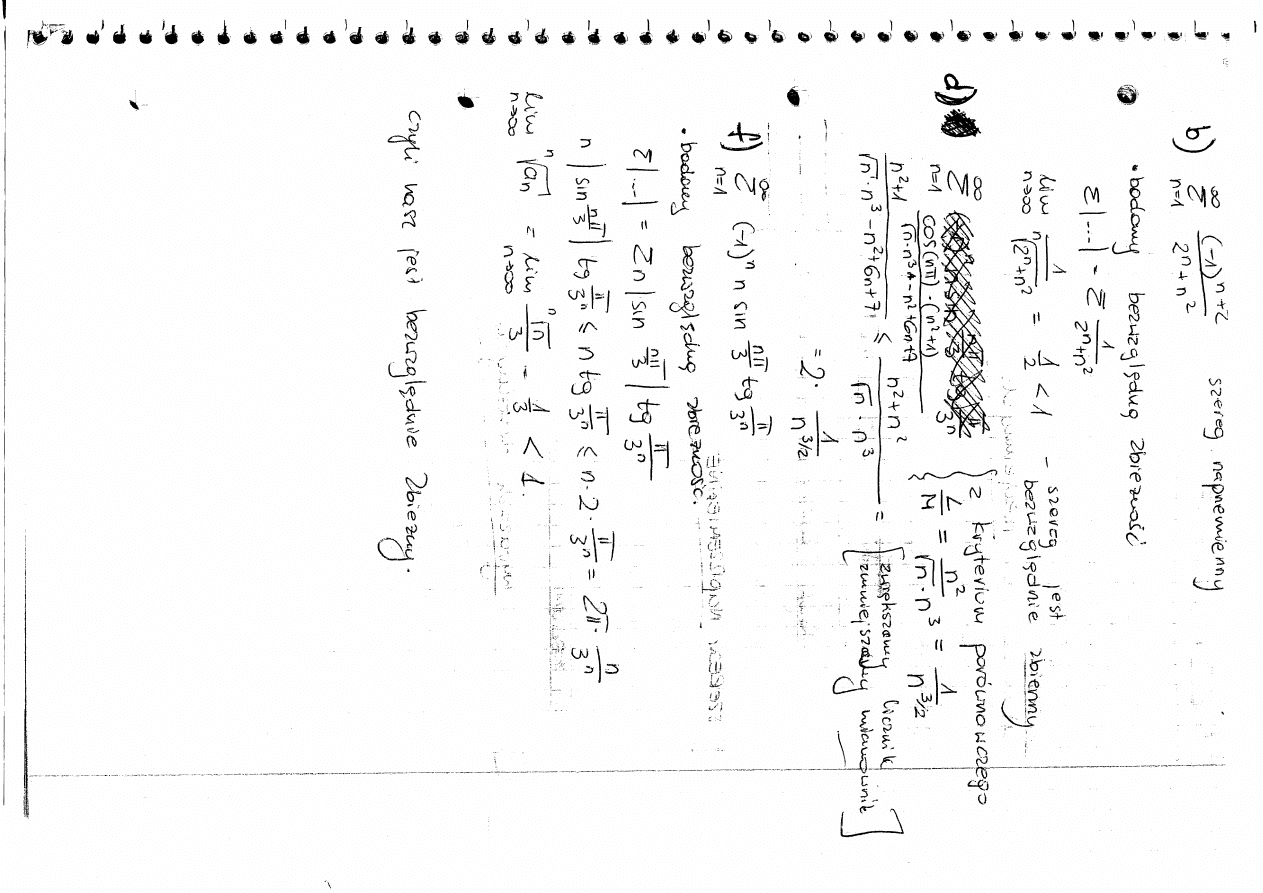 b) ∞Σn=1 (-1)^(n+2) / (2^n+n^2) szereg naprzemienny
• badamy bezwzględną zbieżność
Σ|...| = Σ 1/(2^n+n^2)
lim n→∞ 1/ⁿ√(2^n+n^2) = 1/2 < 1 - szereg jest bezwzględnie zbieżny
d) ∞Σn=1 cos(nπ)·(n^2+1) / (√n·n^3-n^2+6n+7) } z kryterium porównawczego
L/M = n^2/(√n·n^3) = 1/n^(3/2)
(n^2+1)/(√n·n^3-n^2+6n+7) ≤ (n^2+n^2)/(√n·n^3) = [zwiększamy licznik zmniejszamy mianownik]
= 2· 1/n^(3/2)
f) ∞Σn=1 (-1)^n n sin nπ/3 tg π/3^n
• badamy bezwzględną zbieżność.
Σ|...| = Σn|sin nπ/3| tg π/3^n
n|sin nπ/3| tg π/3^n ≤ n tg π/3^n ≤ n·2· π/3^n = 2π· n/3^n
lim n→∞ ⁿ√an = lim n→∞ ⁿ√n/3 = 1/3 < 1.
czyli nasz jest bezwzględnie zbieżny.